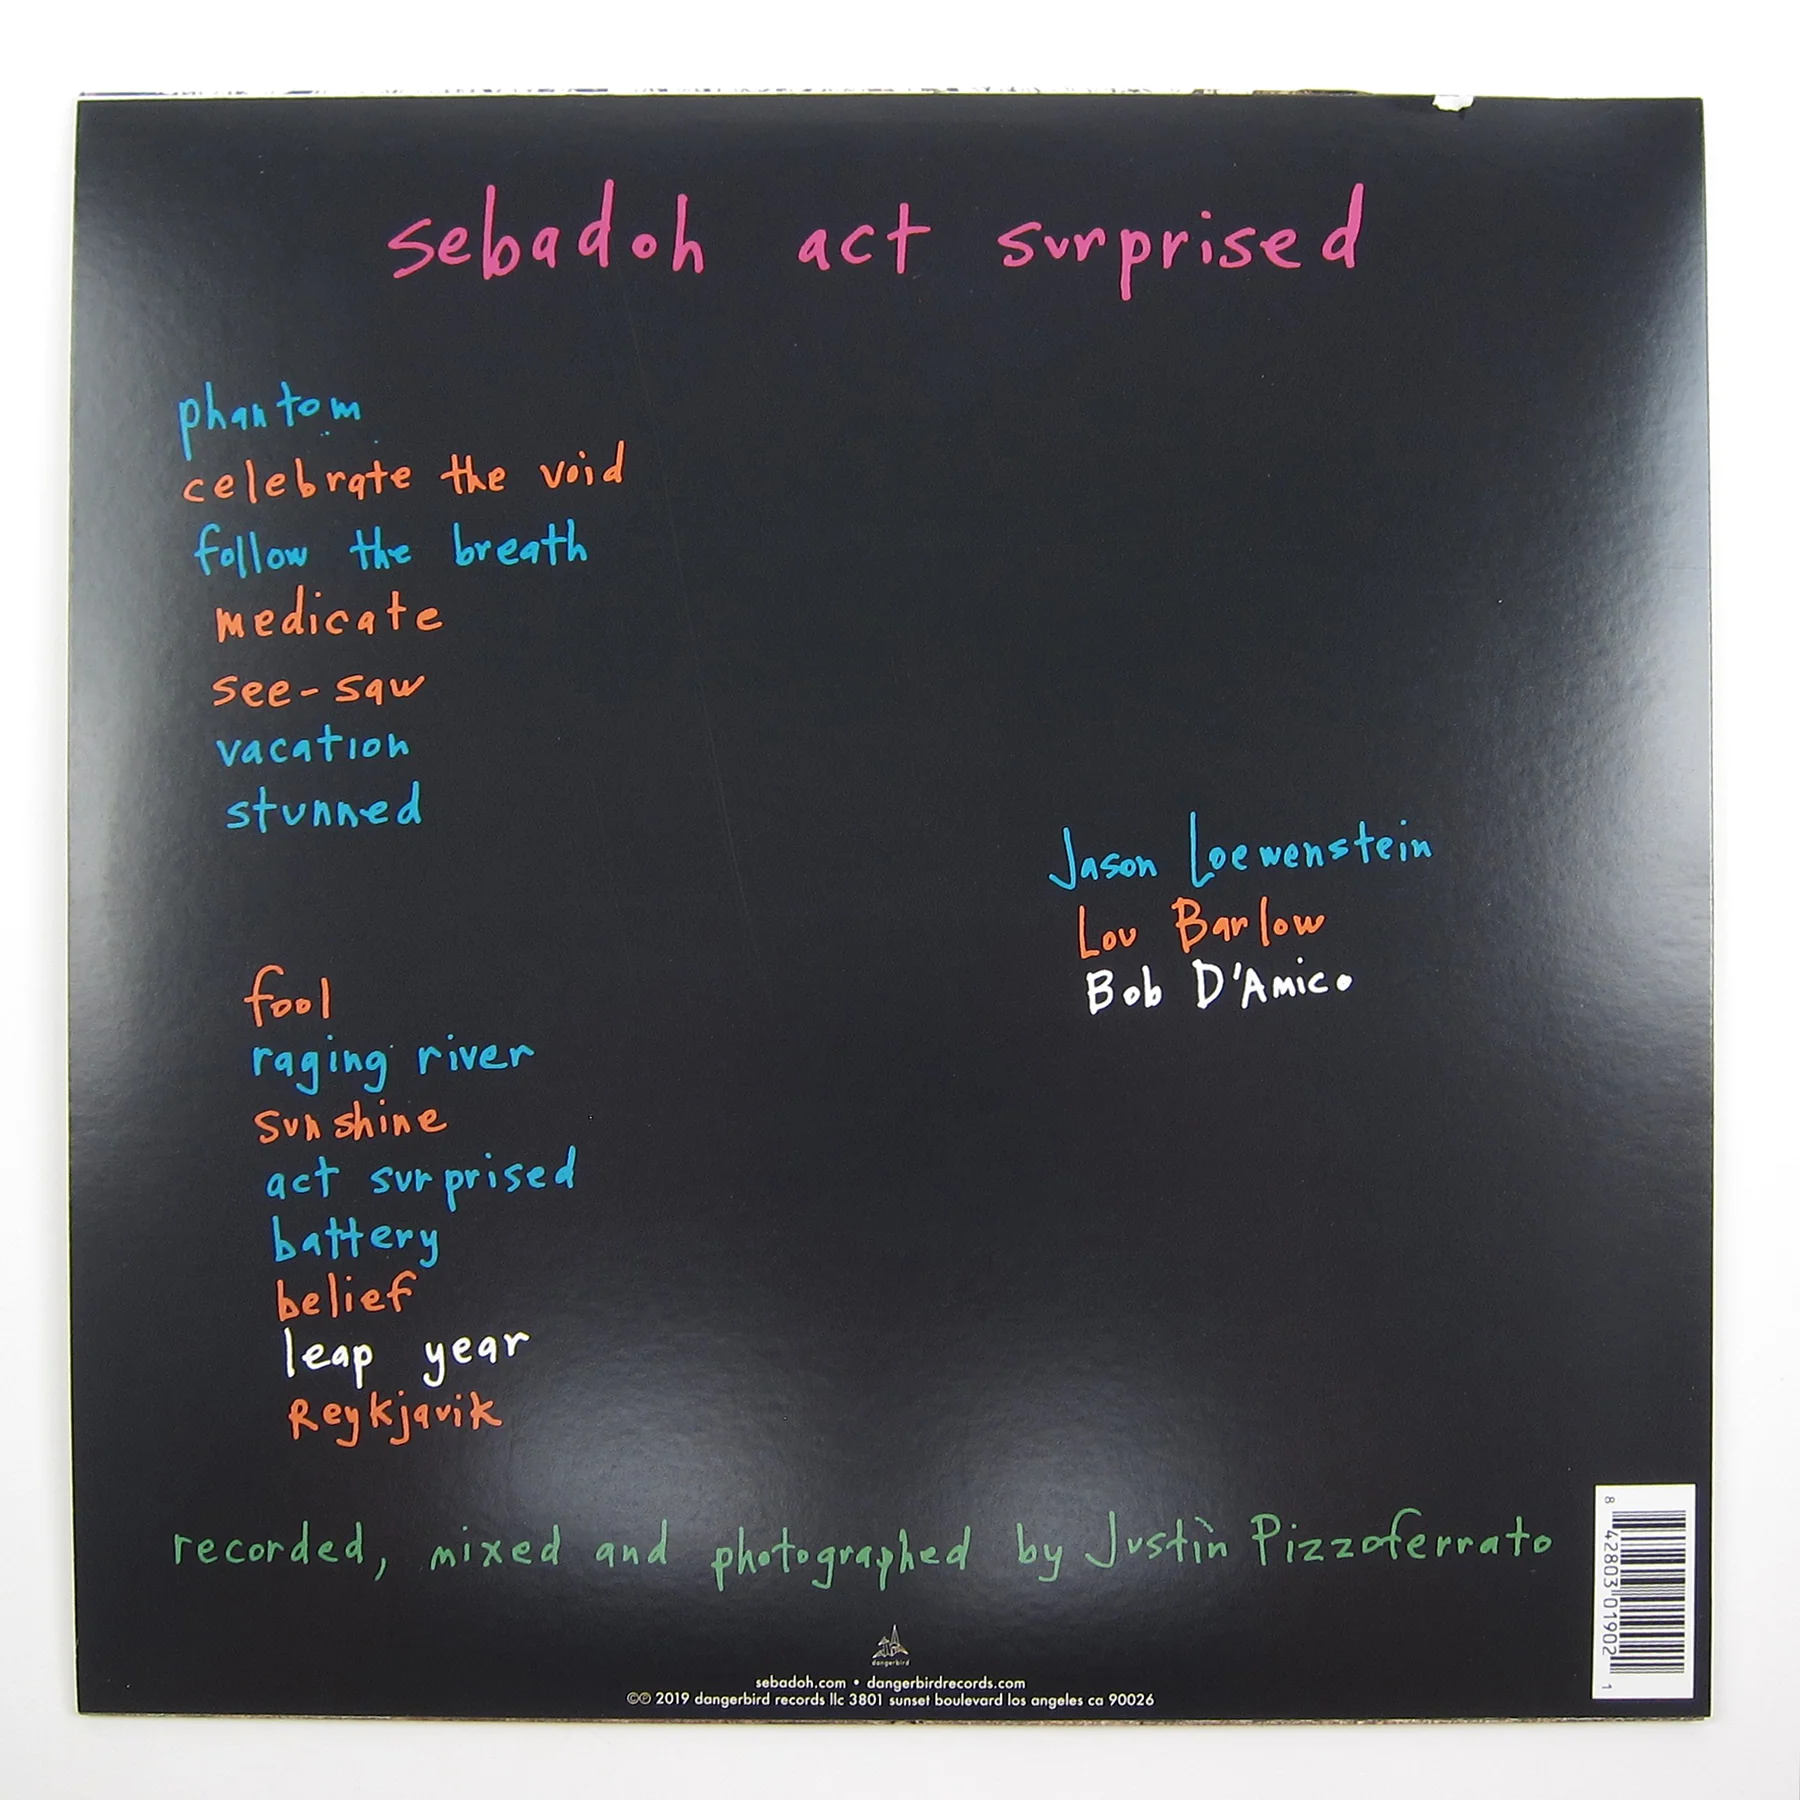 sebadoh act surprised
phantom
celebrate the void
follow the breath
medicate
see-saw
vacation
stunned
Jason Loewenstein
Lou Barlow
Bob D'Amico
fool
raging river
sunshine
act surprised
battery
belief
leap year
Reykjavik
recorded, mixed and photographed by Justin Pizzoferrato
8 42803 01902 1
dangerbird
sebadoh.com • dangerbirdrecords.com
©℗ 2019 dangerbird records llc 3801 sunset boulevard los angeles ca 90026